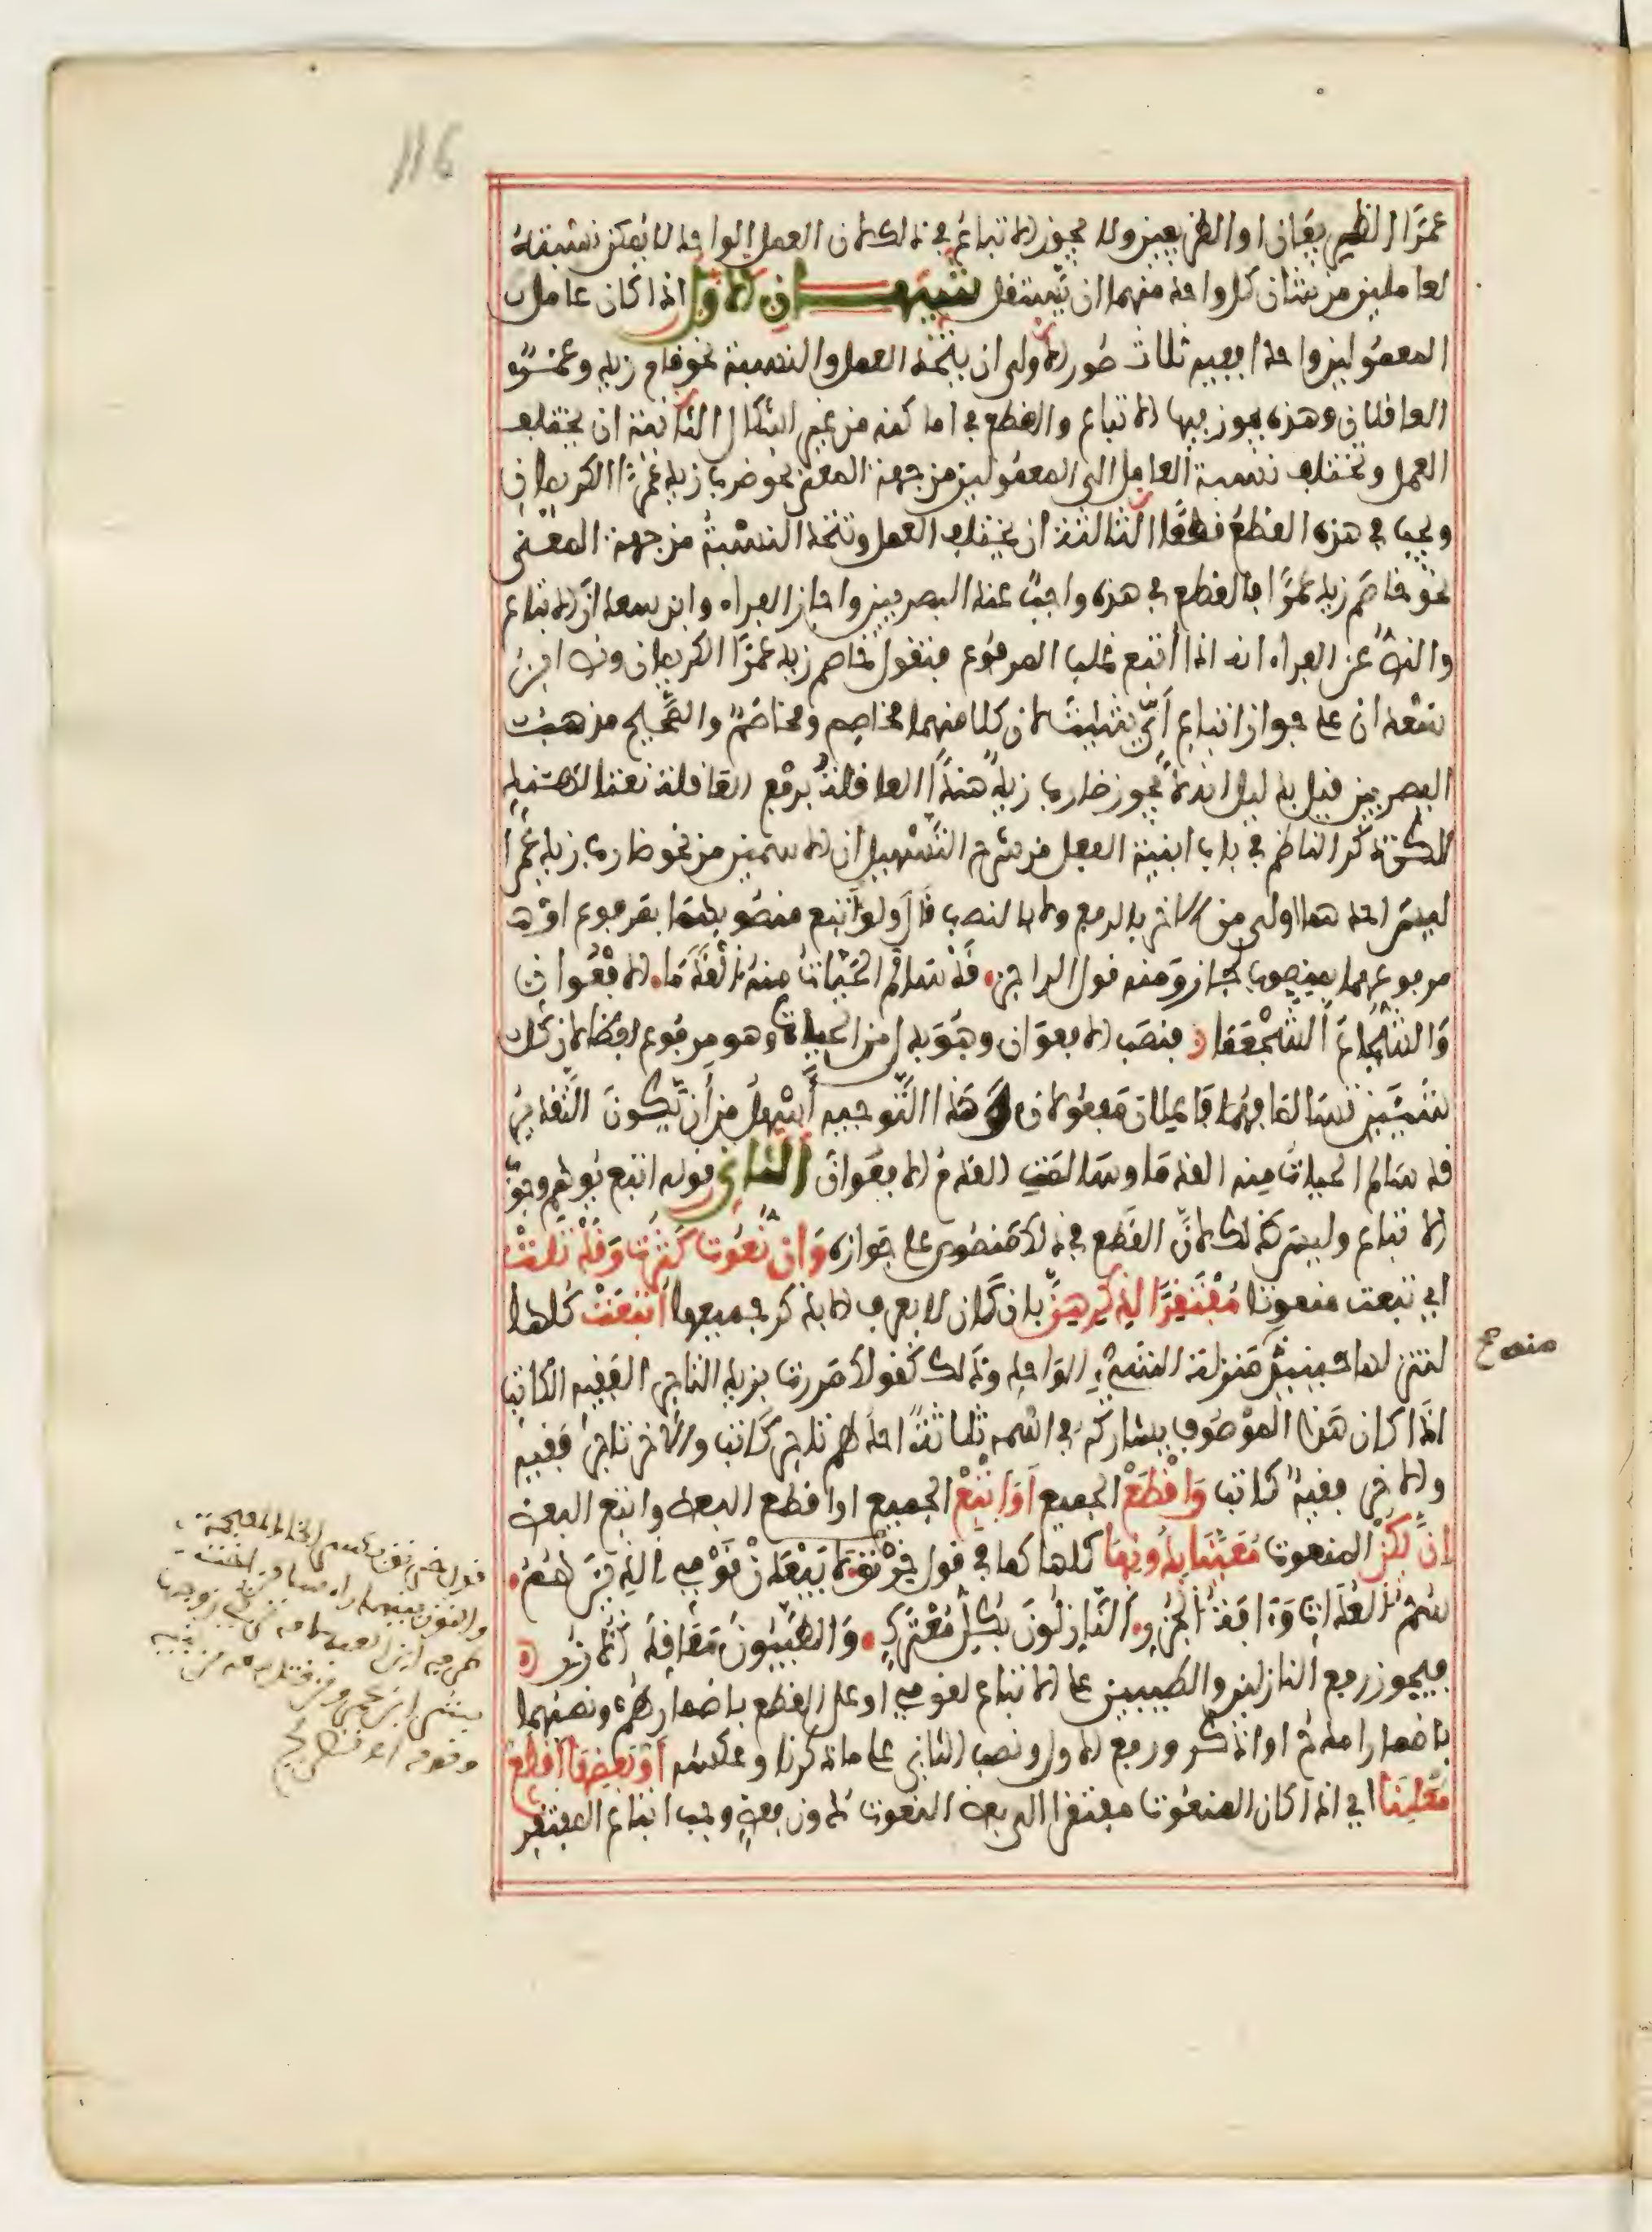 116
عمرًا الظريفان او الظريفين ولا يجوز الاتباع في ذلك لان العمل الواحد لا يمكن نسبته
لعاملين من شان كل واحد منهما ان يستقل تنبيهـــــان الاول اذا كان عامل
المعمولين واحدا ففيه ثلاث صور الاولى ان يتحد العمل والنسبة نحو قام زيد وعمرو
العاقلان وهذه يجوز فيها الاتباع والقطع في اماكنه من غير اشكال الثانية ان يختلف
العمل وتختلف نسبة العامل الى المعمولين من جهة المعنى نحو ضرب زيد عمرًا الكريمان
ويجب في هذه القطع قطعًا الثالثة ان يختلف العمل وتتحد النسبة من جهة المعنى
نحو خاصم زيد عمرًا فالقطع في هذه واجب عند البصريين واجاز الفراء وابن سعدان الاتباع
والنص عن الفراء انه اذا أتبع غلب المرفوع فتقول خاصم زيد عمرًا الكريمان ونص ابن
سعدان على جواز اتباع أي شئت لان كلا منهما مخاصم ومخاصَم والصحيح مذهب
البصريين قيل بدليل انه لا يجوز ضارب زيد هندًا العاقلة برفع العاقلة نعتا لهند
لكن ذكر الناظم في باب ابنية الفعل من شرح التسهيل ان الاسمين من نحو ضارب زيد عمرا
ليس احدهما اولى من الاخر بالرفع ولا بالنصب قال ولو أتبع منصوبهما بمرفوع او
مرفوعهما بمنصوب لجاز ومنه قول الراجز • قد سالم الحيات منه القدما • الافعوان
والشجاع الشجعما • فنصب الافعوان وهو بدل من الحيات وهو مرفوع لفظا لان كل
شيئين تسالما فهما فاعلان مفعولان وهذا التوجيه أسهل من أن يكون التقدير
قد سالم الحيات منه القدما وسالمت القدم الافعوان الثاني قوله اتبع يوهم وجوب
الاتباع وليس كذلك لان القطع في ذلك منصوص على جوازه وان نعوت كثرت وقد تلت
اي تبعت منعوتا مفتقرا لذكرهن بان كان لا يعرف الا بذكر جميعها أتبعت كلها
لتنزلها حينئذ منزلة الشيء الواحد وذلك كقولك مررت بزيد التاجر الفقيه الكاتب
اذا كان هذا الموصوف يشاركه في اسمه ثلاثة احدهم تاجر كاتب والآخر تاجر فقيه
والاخر فقيه كاتب واقطع الجميع او اتبع الجميع او اقطع البعض واتبع البعض
ان يكن المنعوت معينا بدونها كلها كما في قول خرنق لا يبعدن قومي الذين هم •
سم العداة وآفة الجزر • النازلون بكل معترك • والطيبون معاقد الازر •
فيجوز رفع النازلين والطيبين على الاتباع لقومي او على القطع باضمار هم ونصبهما
باضمار امدح او اذكر ورفع الاول ونصب الثاني على ما ذكرنا وعكسه او بعضها اقطع
معلنا اي اذا كان المنعوت مفتقرا الى بعض النعوت دون بعض وجب اتباع المفتقر